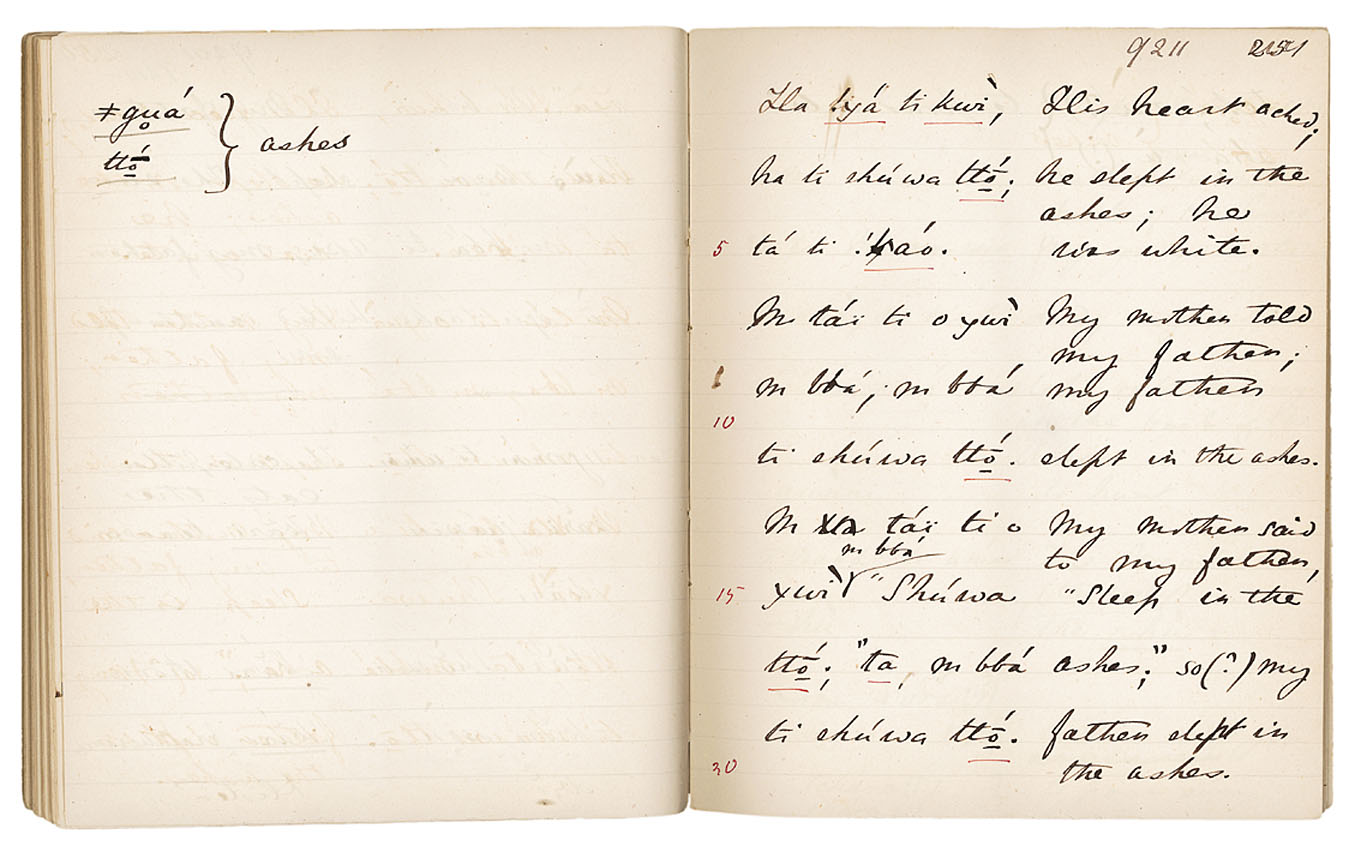 ≠guá
ttó̱ } ashes
9211
Ha tyá ti kwì, His heart ached;
ha ti shúwa ttó̱; he slept in the
ashes; he
5 tá ti !káo. was white.
M táï ti o χwì My mother told
my father;
m bbá; m bbá my father
10
ti shúwa ttó̱. slept in the ashes.
M táï ti o My mother said
m bbá to my father,
15 χwì "Shúwa "Sleep in the
ttó̱;" ta, m bbá ashes;" so (?) my
ti shúwa ttó̱. father slept in
20 the ashes.